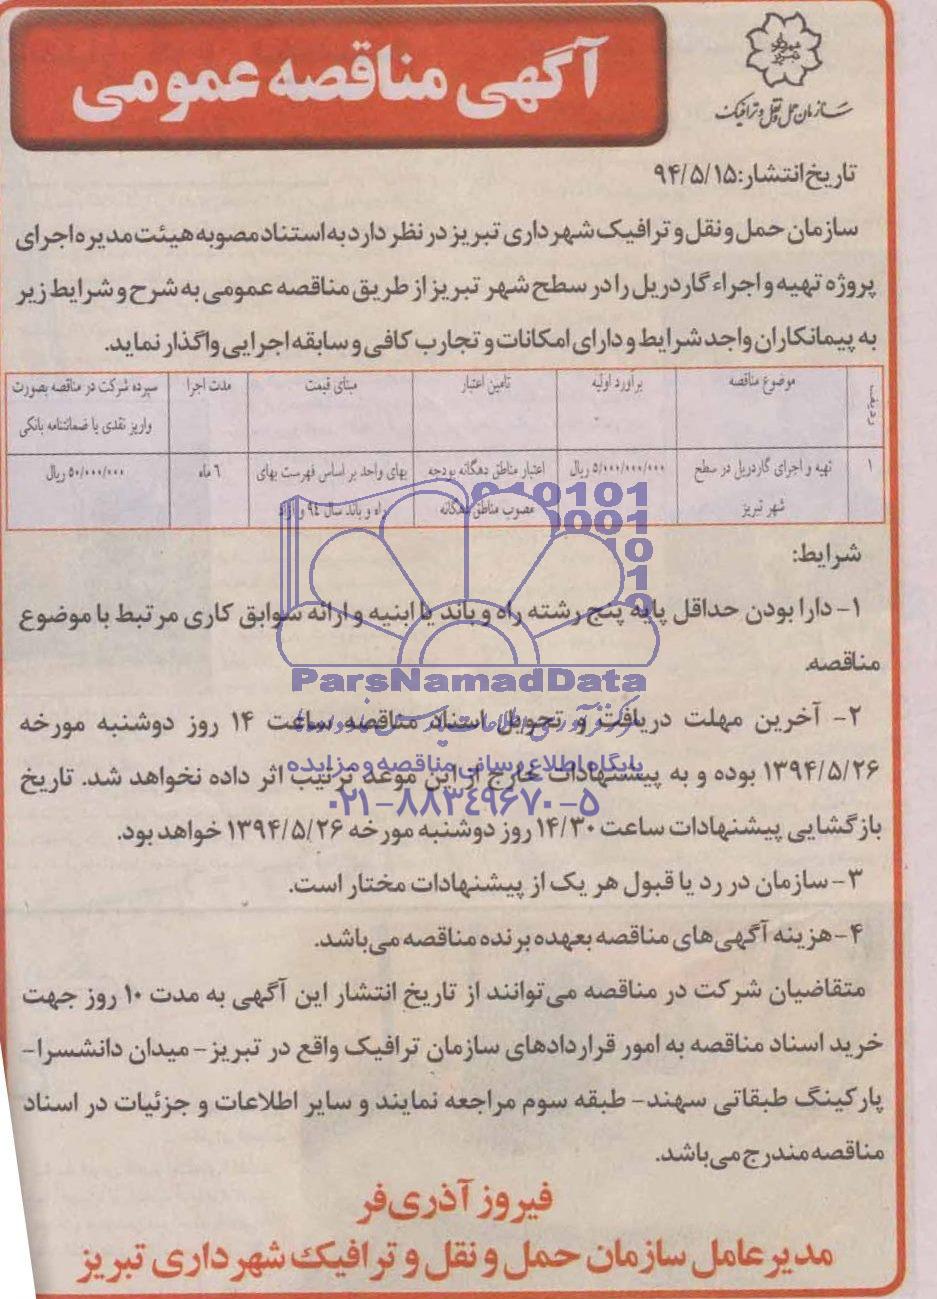 آگهی مناقصه عمومی
سازمان حمل و نقل و ترافیک
تاریخ انتشار: ۹۴/۵/۱۵
سازمان حمل و نقل و ترافیک شهرداری تبریز در نظر دارد به استناد مصوبه هیئت مدیره اجرای
پروژه تهیه و اجراء گاردریل را در سطح شهر تبریز از طریق مناقصه عمومی به شرح و شرایط زیر
به پیمانکاران واجد شرایط و دارای امکانات و تجارب کافی و سابقه اجرایی واگذار نماید.
ردیف موضوع مناقصه برآورد اولیه تامین اعتبار مبنای قیمت مدت اجرا سپرده شرکت در مناقصه بصورت
واریز نقدی یا ضمانتنامه بانکی
۱ تهیه و اجرای گاردریل در سطح ۵/۰۰۰/۰۰۰/۰۰۰ ریال اعتبار مناطق دهگانه بودجه بهای واحد بر اساس فهرست بهای ۶ ماه ۵۰/۰۰۰/۰۰۰ ریال
شهر تبریز مصوب مناطق دهگانه راه و باند سال ۹۴ و آزاد
شرایط:
۱- دارا بودن حداقل پایه پنج رشته راه و باند یا ابنیه و ارائه سوابق کاری مرتبط با موضوع
مناقصه.
ParsNamadData
۲- آخرین مهلت دریافت و تحویل اسناد مناقصه ساعت ۱۴ روز دوشنبه مورخه
پایگاه اطلاع رسانی مناقصه و مزایده
۱۳۹۴/۵/۲۶ بوده و به پیشنهادات خارج از این موعد ترتیب اثر داده نخواهد شد. تاریخ
۰۲۱-۸۸۳۴۹۶۷۰-۵
بازگشایی پیشنهادات ساعت ۱۴/۳۰ روز دوشنبه مورخه ۱۳۹۴/۵/۲۶ خواهد بود.
۳- سازمان در رد یا قبول هر یک از پیشنهادات مختار است.
۴- هزینه آگهی های مناقصه بعهده برنده مناقصه می باشد.
متقاضیان شرکت در مناقصه می توانند از تاریخ انتشار این آگهی به مدت ۱۰ روز جهت
خرید اسناد مناقصه به امور قراردادهای سازمان ترافیک واقع در تبریز- میدان دانشسرا-
پارکینگ طبقاتی سهند- طبقه سوم مراجعه نمایند و سایر اطلاعات و جزئیات در اسناد
مناقصه مندرج می باشد.
فیروز آذری فر
مدیر عامل سازمان حمل و نقل و ترافیک شهرداری تبریز